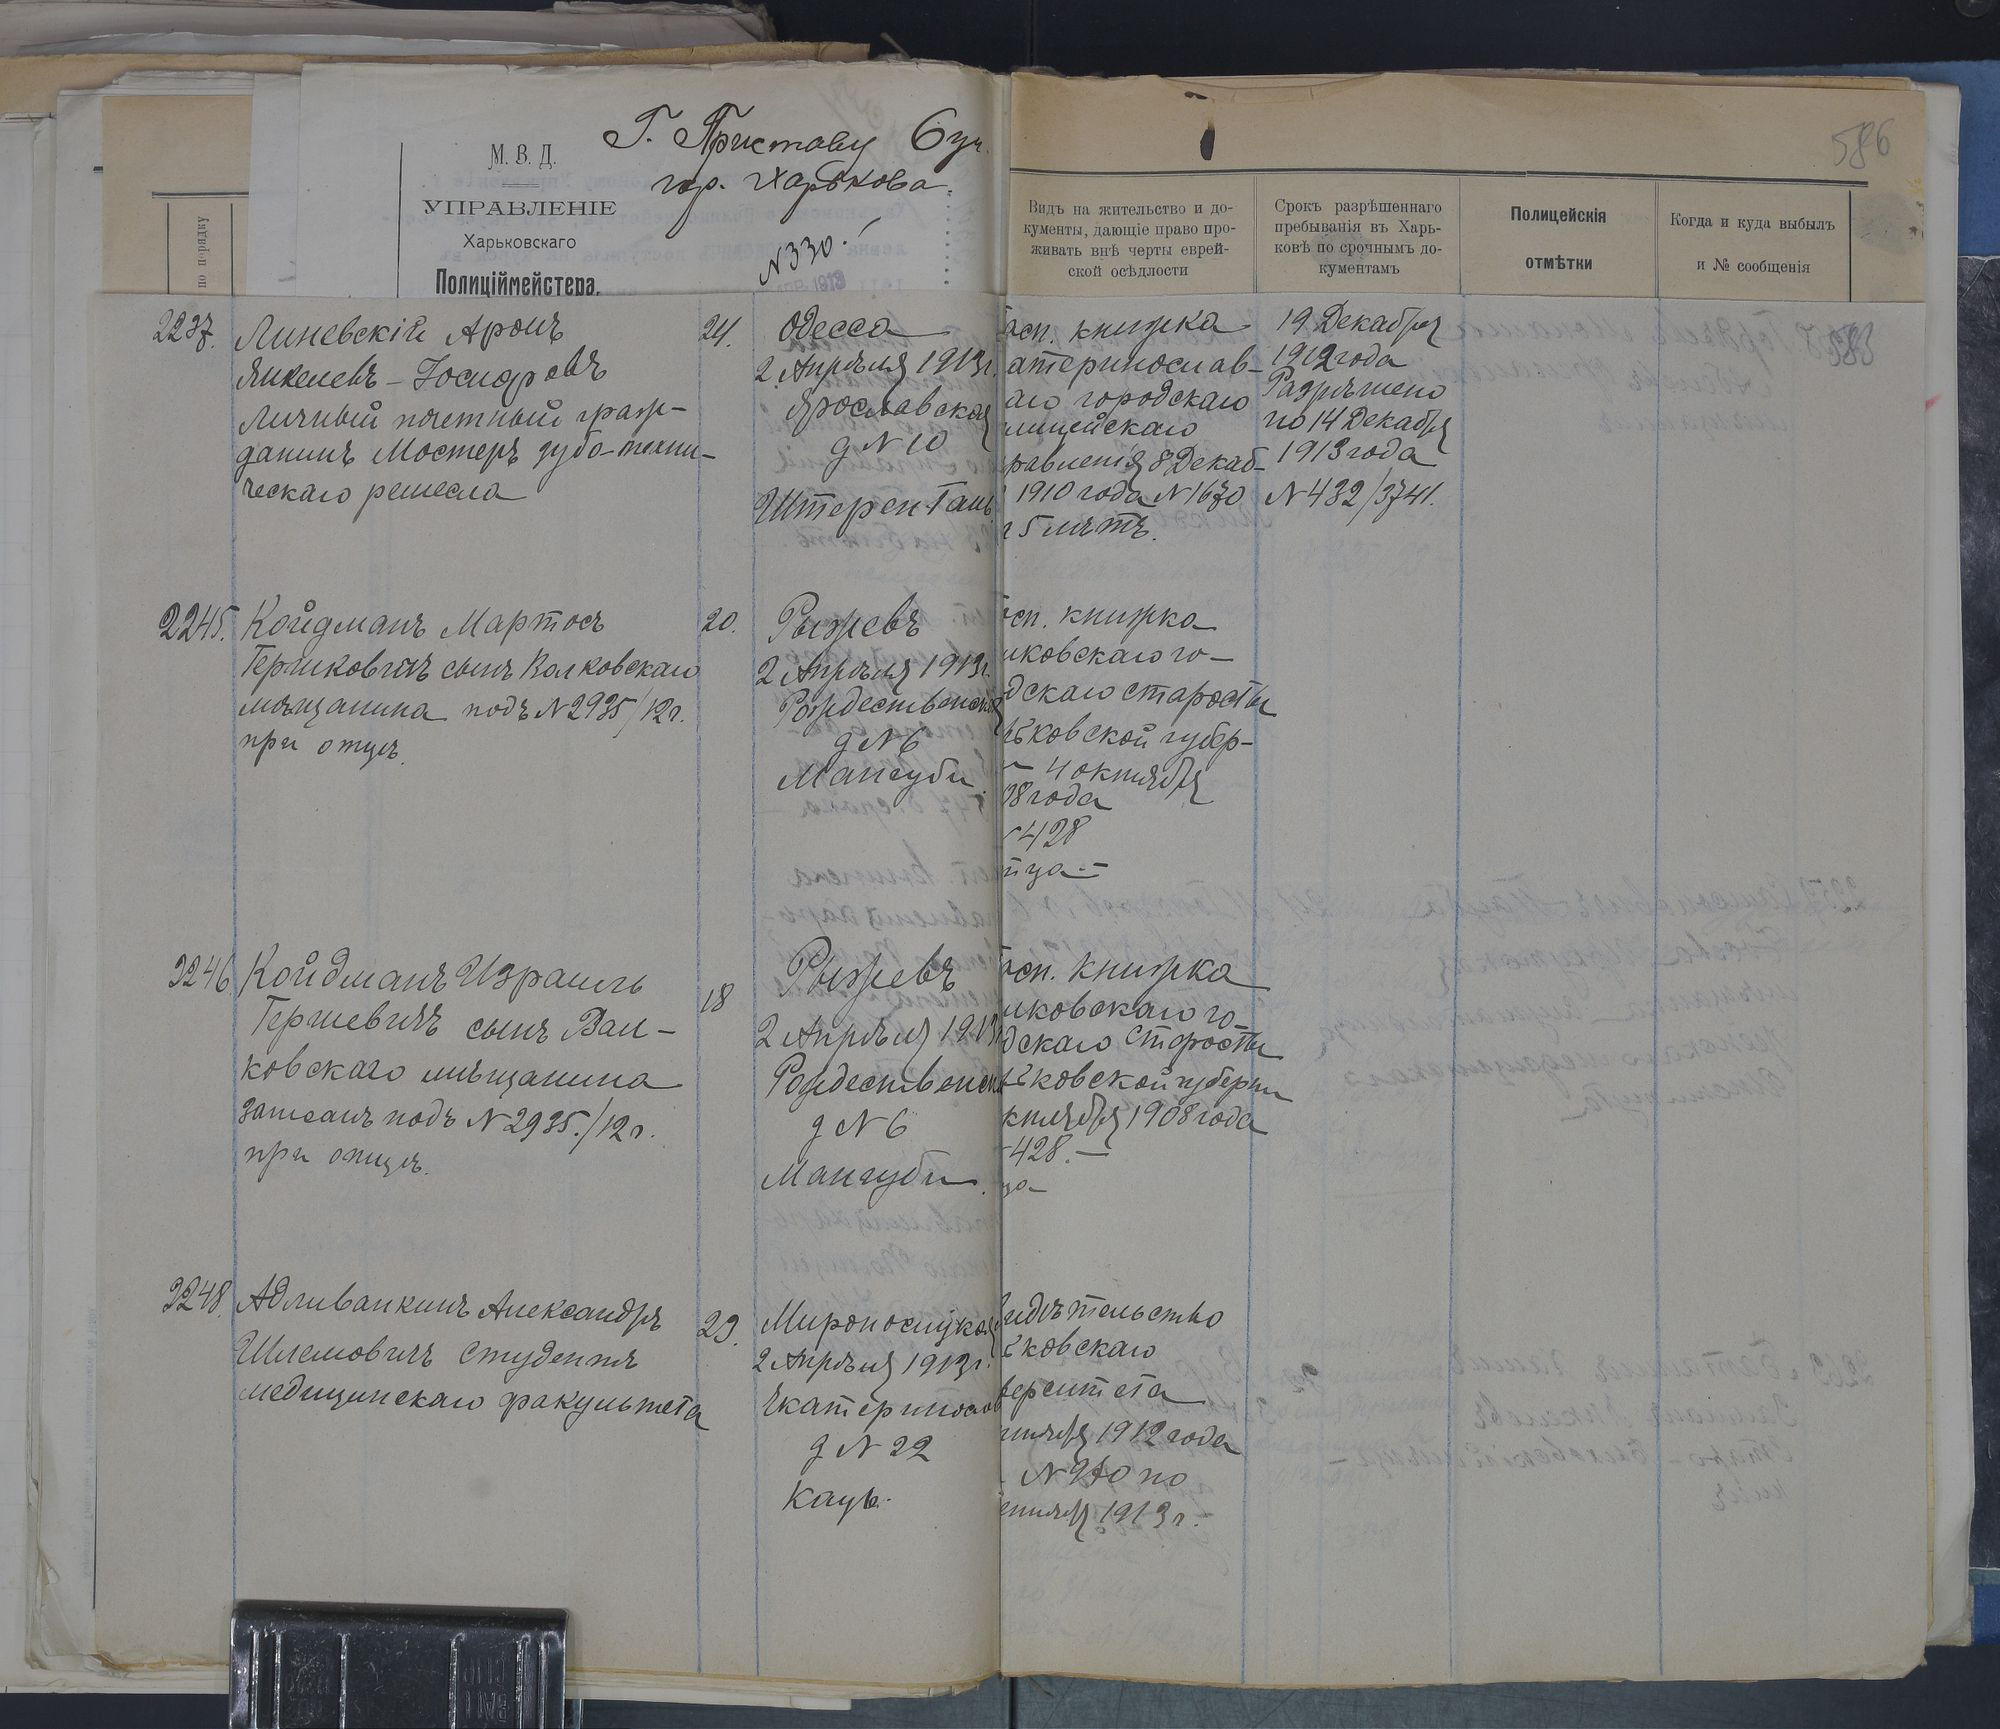 Г. Приставу 6 уч.
гор. Харькова.
М. В. Д.
УПРАВЛЕНІЕ
Харьковскаго
Полиціймейстера.
N 330.
586
по порядку
Видъ на жительство и до-
кументы, дающіе право про-
живать внѣ черты еврей-
ской осѣдлости
Срокъ разрѣшеннаго
пребыванія въ Харь-
ковѣ по срочнымъ до-
кументамъ
Полицейскія
отмѣтки
Когда и куда выбылъ
и № сообщенія
2237. Линевскій Аронъ
Янкелевъ-Іосифовъ
личный почетный граж-
данинъ Мастеръ зубо-техни-
ческаго ремесла
24.
Одесса
2 Апрѣля 1913 г.
Ярославская
д N 10
Штеренталь
асп. книжка
атеринослав-
аго городскаго
лицейскаго
равленія 8 Декаб-
1910 года N 1670
5 лѣтъ.
19 Декабря
1912 года
Разрѣшено
по 14 Декабря
1913 года
N 432/3741.
2245. Койдманъ Мартосъ
сынъ Валковскаго
мѣщанина подъ N 2935/12 г.
при отцѣ.
20.
Рыжевъ
2 Апрѣля 1913 г.
Рождественская
д N 6
Мангуби.
асп. книжка
лковскаго го-
дскаго старосты
ьковской губер-
4 октября
08 года
428
тца-
2246 Койдманъ Израиль
Гершевичъ сынъ Вал-
ковскаго мѣщанина
записанъ подъ N 2935./12 г.
при отцѣ.
18
Рыжевъ
2 Апрѣля 1913
Рождественск
д N 6
Мангуби.
асп. книжка
лковскаго го-
дскаго Старосты
ьковской губерніи
ктября 1908 года
428.-
ца-
2248. Адливанкинъ Александръ
Шлемовичъ студентъ
медицинскаго факультета
23.
Мироносицкая
2 Апрѣля 1913 г.
Екатеринослав
д N 22
Кацъ.
идѣтельство
ьковскаго
верситета
нтября 1912 года
N 970 по
ентября 1913 г.